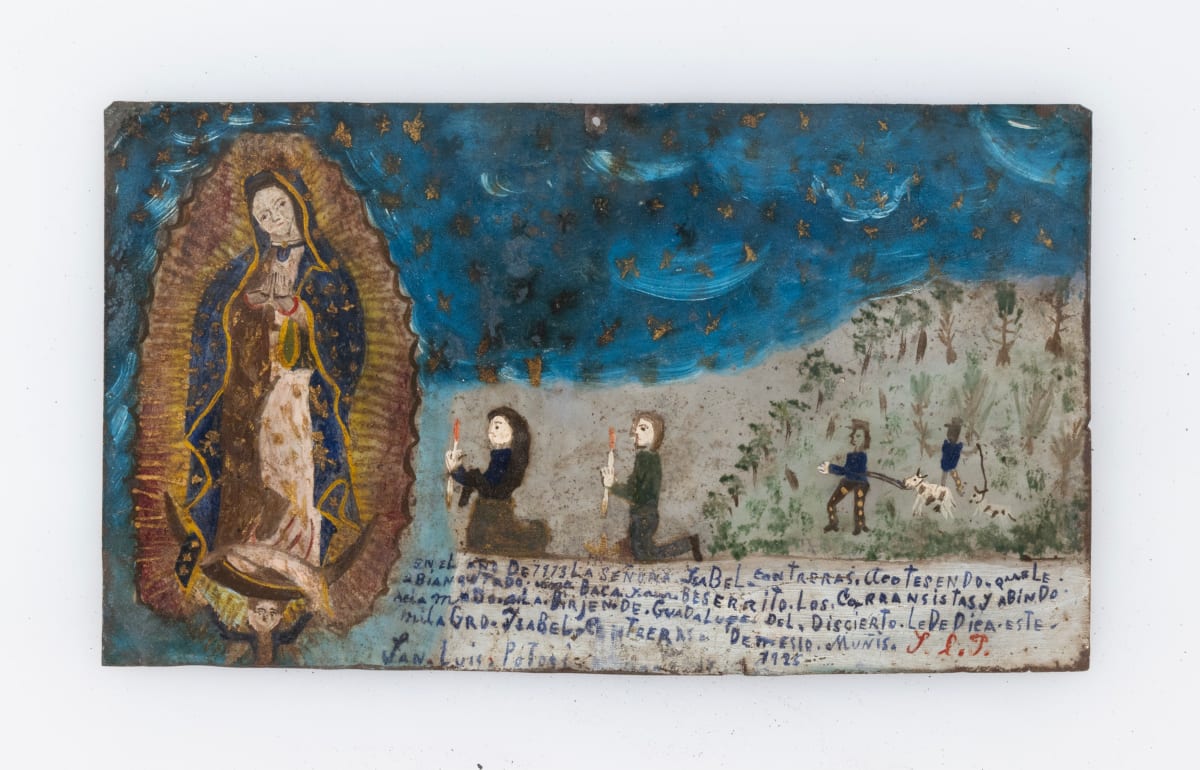 EN EL AÑO DE 1913 LA SEÑORA YSABEL CONTRERAS. ACOTESENDO. que LE.
ABIAN QUTADO. una BACA. y aun BESERRITO. LOS. CARRANSISTAS. Y ABINDO.
ACLAMADO. A LA. BIRJEN. DE. GUADALUPE. DEL. DISCIERTO. LE DEDICA. ESTE.
MILAGRO. YSABEL. CONTRERAS. DEMESIO. MUNIS. S. L. P.
SAN. LUIS. POTOSÍ
1925